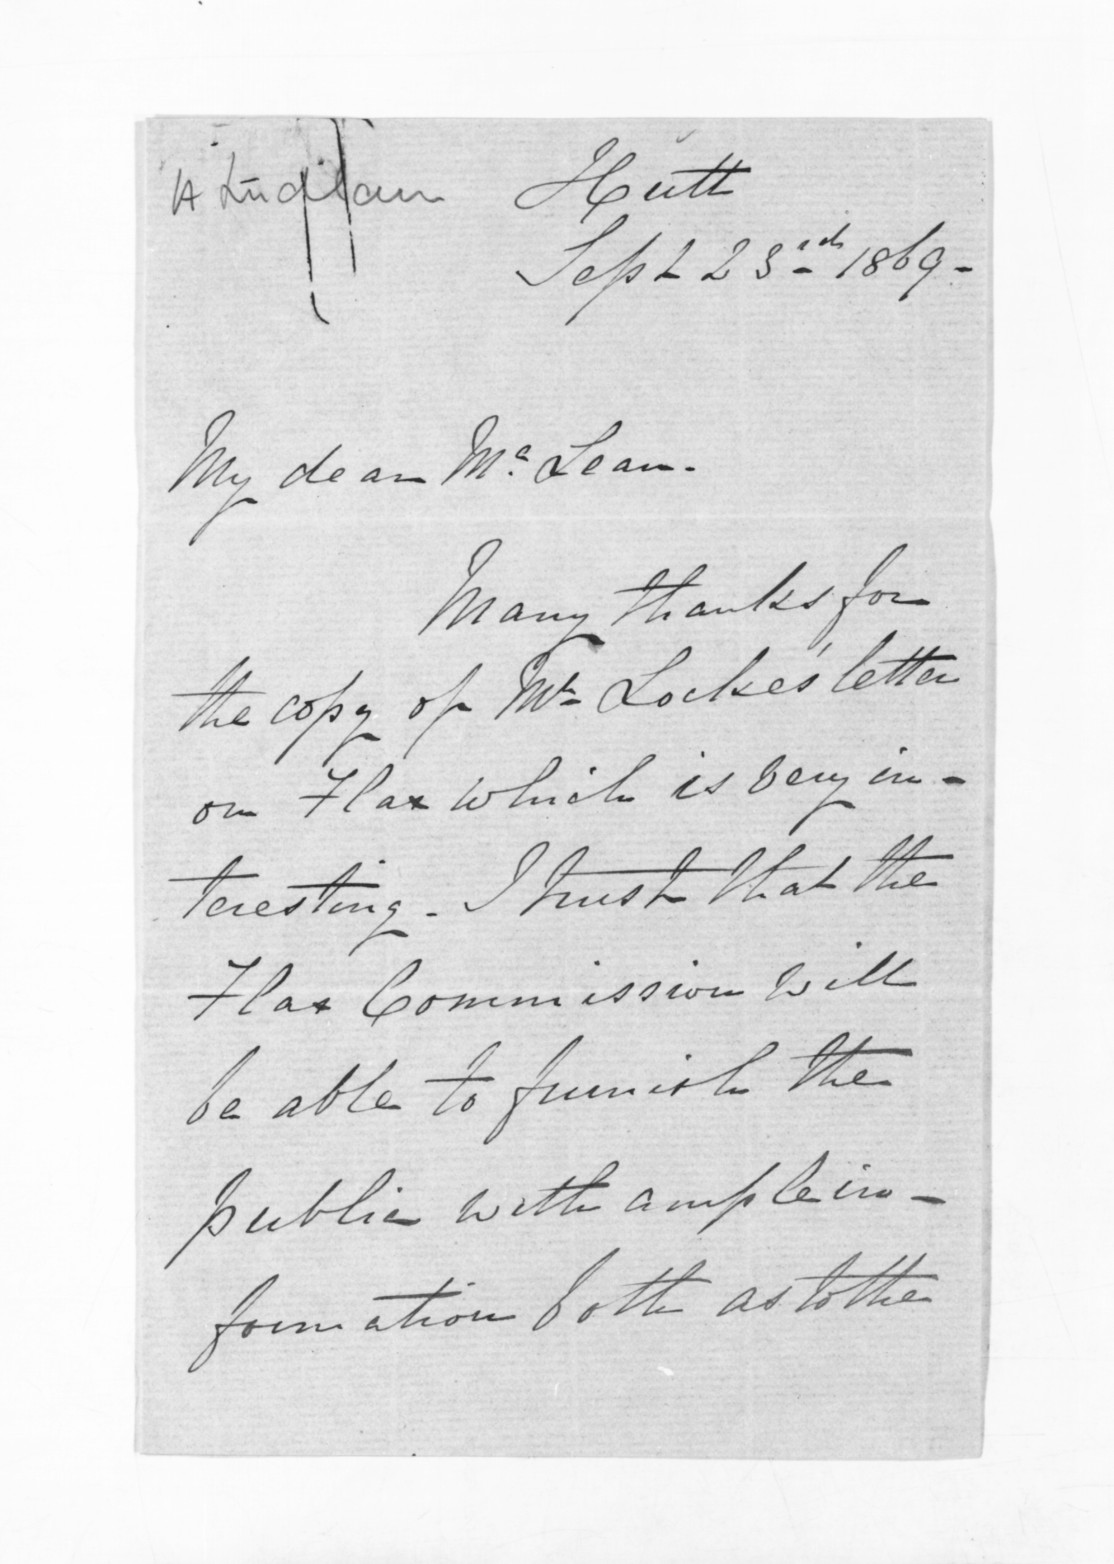 A Ludlam
Hutt
Sept 23rd 1869 -
My dear Mc Lean.
Many thanks for
the copy of Mr Locke's letter
on Flax which is very in-
teresting - I trust that the
Flax Commission will
be able to furnish the
public with ample in-
formation both as to the